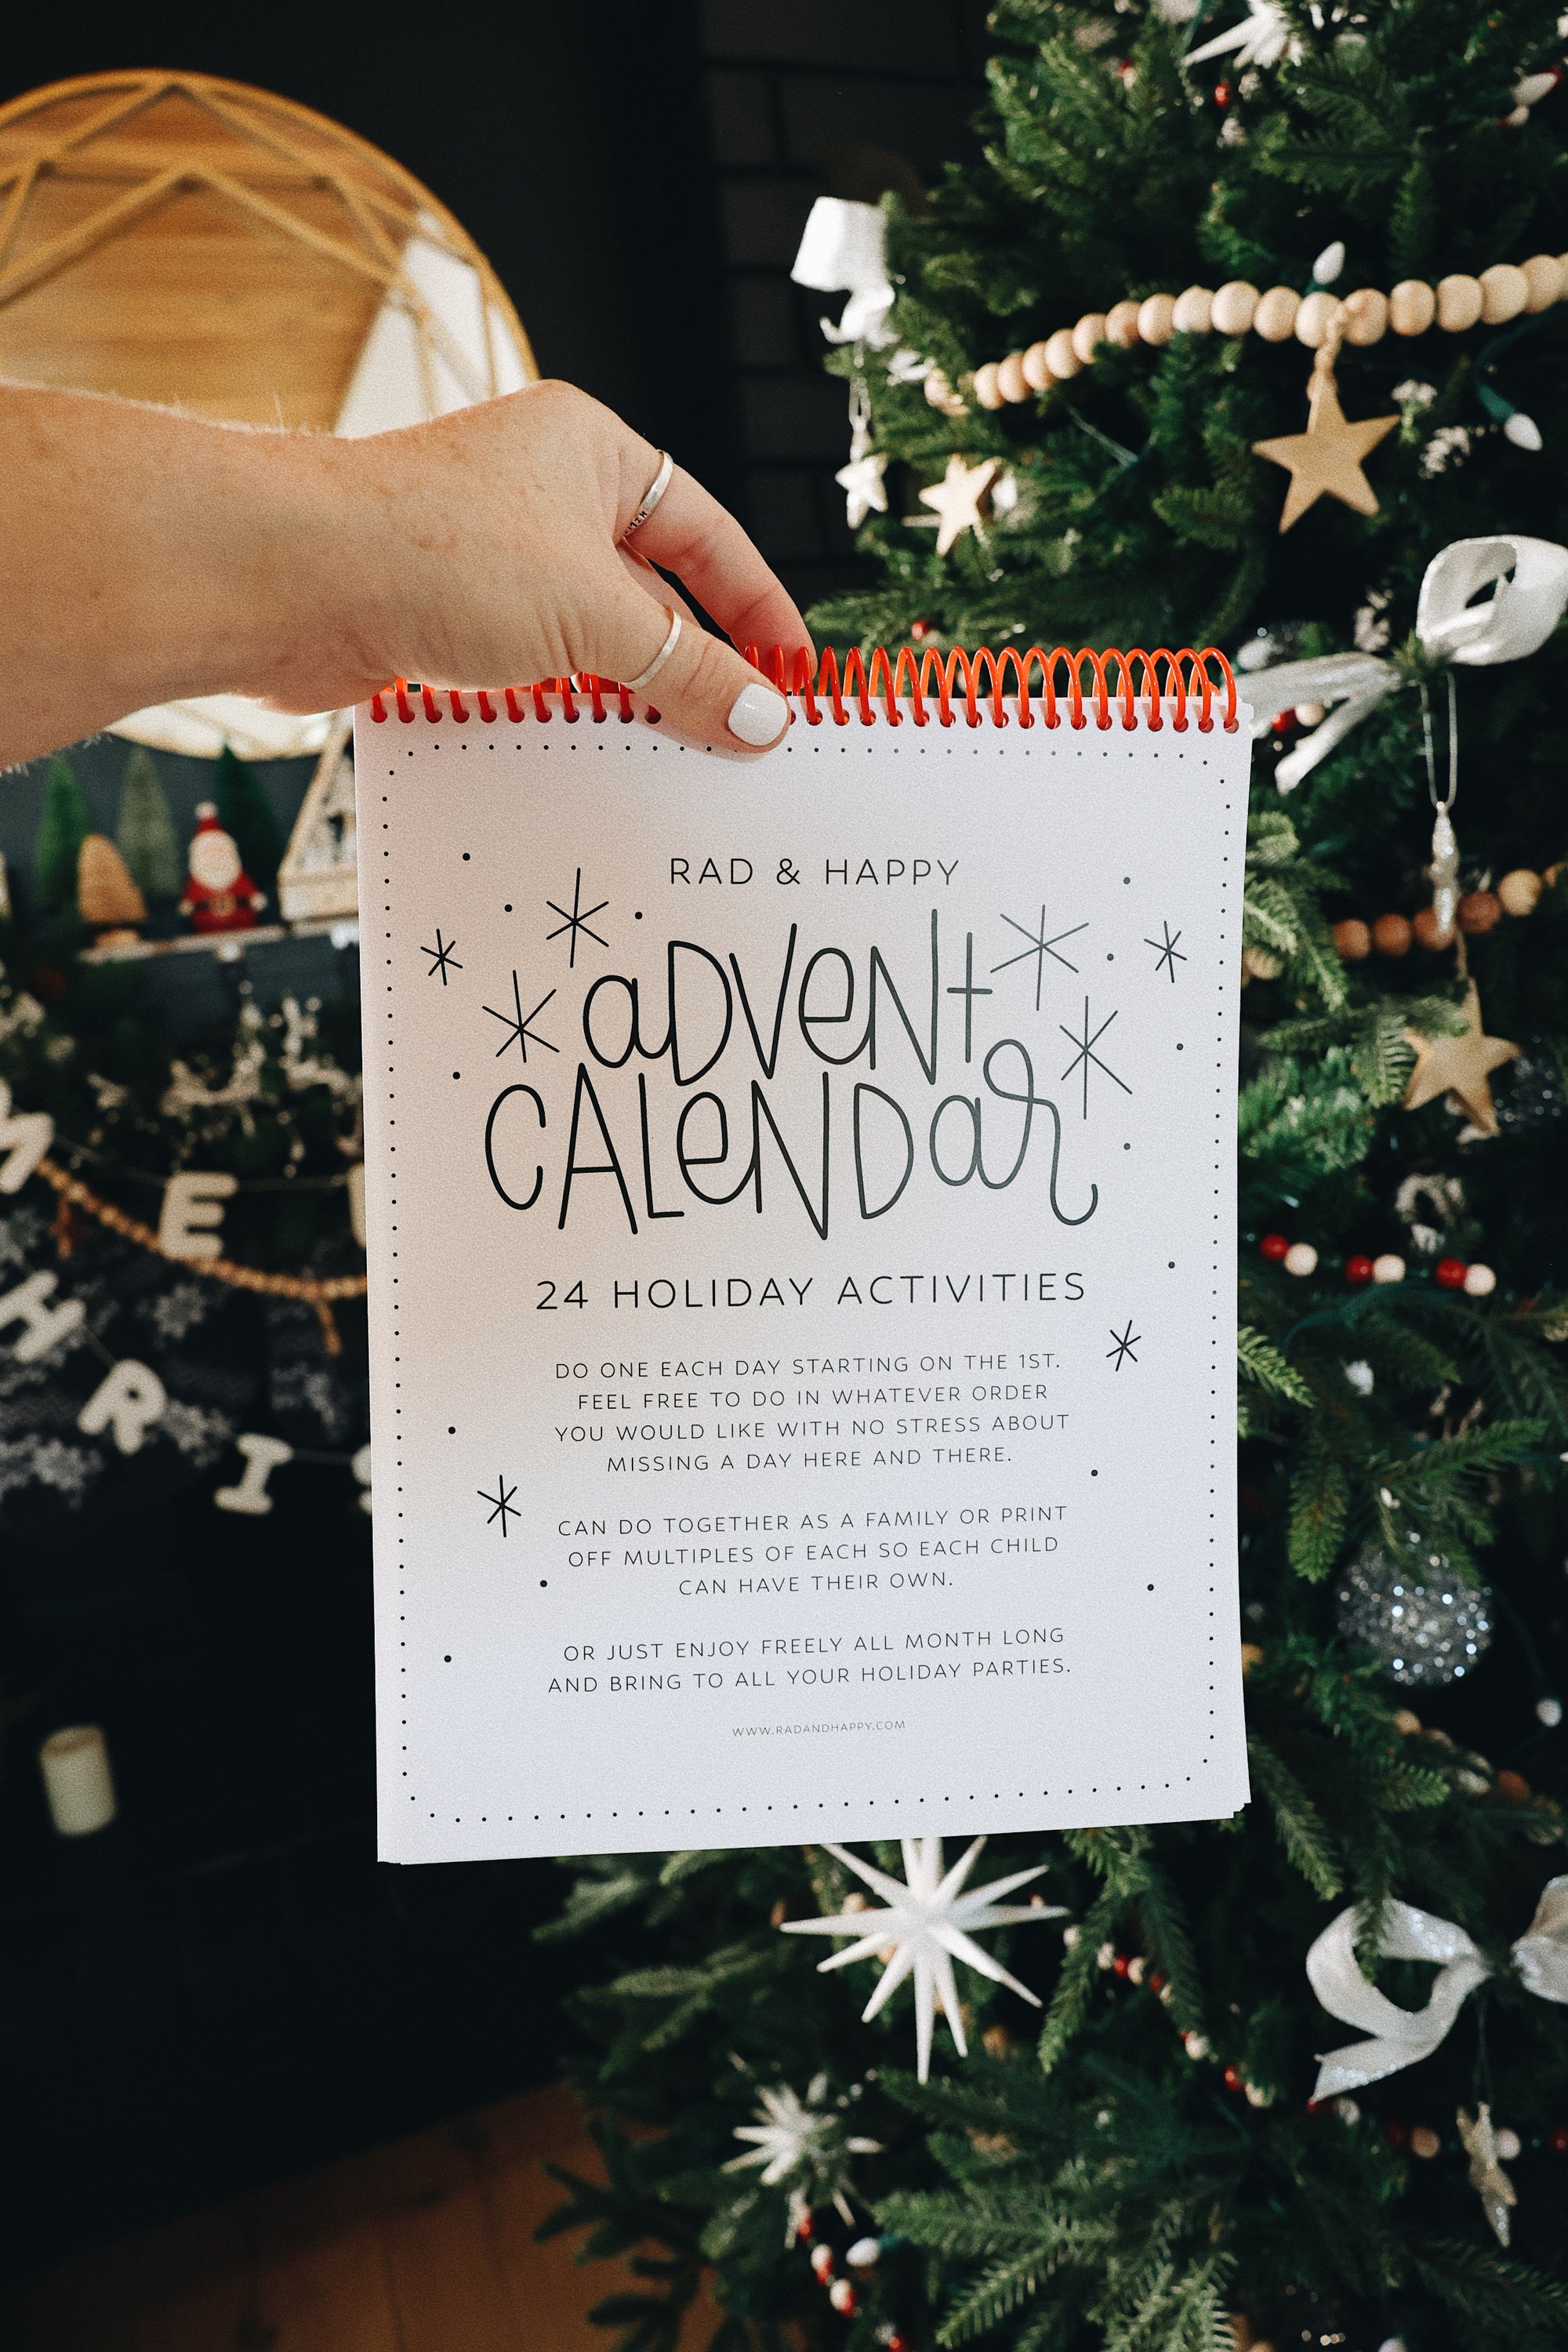 RAD & HAPPY
aDVeNt
CALeNDar
24 HOLIDAY ACTIVITIES
DO ONE EACH DAY STARTING ON THE 1ST.
FEEL FREE TO DO IN WHATEVER ORDER
YOU WOULD LIKE WITH NO STRESS ABOUT
MISSING A DAY HERE AND THERE.
CAN DO TOGETHER AS A FAMILY OR PRINT
OFF MULTIPLES OF EACH SO EACH CHILD
CAN HAVE THEIR OWN.
OR JUST ENJOY FREELY ALL MONTH LONG
AND BRING TO ALL YOUR HOLIDAY PARTIES.
WWW.RADANDHAPPY.COM
M E
H R I